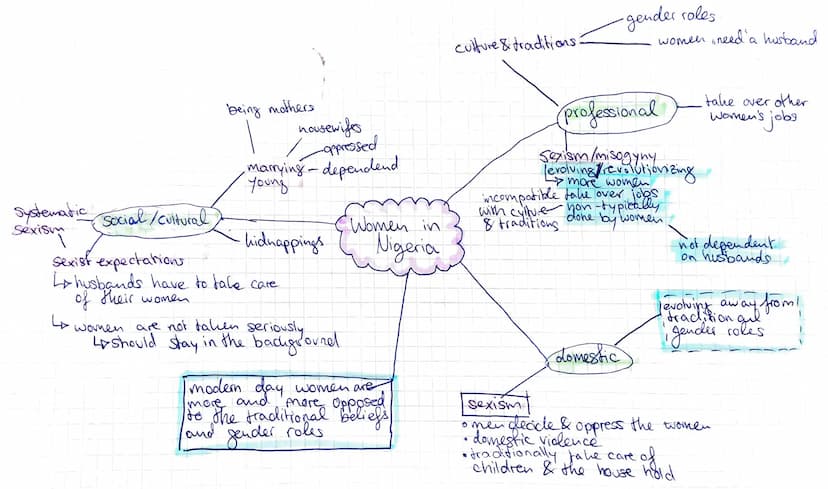 gender roles
culture & traditions
women "need" a husband
professional
take over other
women's jobs
being mothers
housewifes
oppressed
marrying
young
dependend
sexism/misogyny
evolving/revolutionizing
↳ more women
take over jobs
non-typically
done by women
incompatible
with culture
& traditions
not dependent
on husbands
Systematic
sexism
social/cultural
kidnappings
Women in
Nigeria
sexist expectations
↳ husbands have to take care
of their women
↳ women are not taken seriously
↳ should stay in the background
evolving away from
traditional
gender roles
domestic
modern day women are
more and more opposed
to the traditional beliefs
and gender roles
sexism
• men decide & oppress the women
• domestic violence
• traditionally take care of
children & the house hold